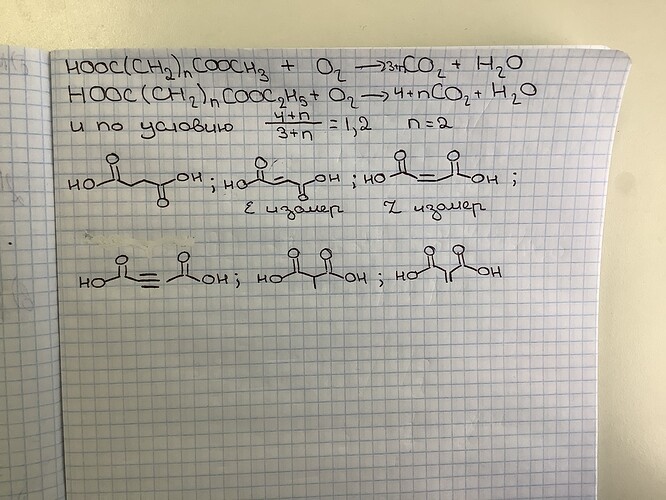 HOOC(CH₂)ₙCOOCH₃ + O₂ → 3+nCO₂ + H₂O
HOOC(CH₂)ₙCOOC₂H₅ + O₂ → 4+nCO₂ + H₂O
и по условию (4+n)/(3+n) = 1,2 n=2
HO O OH O ; HO O OH O ; HO O O OH ;
E изомер Z изомер
HO O O OH ; HO O O OH ; HO O O OH